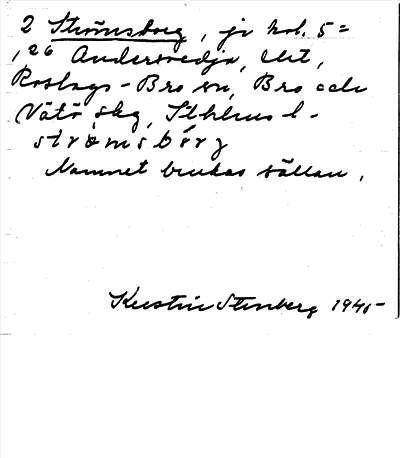 2 Strömsborg, jr kol. 5=
,26 Andersvedja, lht,
Roslags-Bro sn, Bro och
Vätö skg, Sthlms l-
strømsbórj
Namnet brukas sällan.
Kerstin Stenberg 1945-